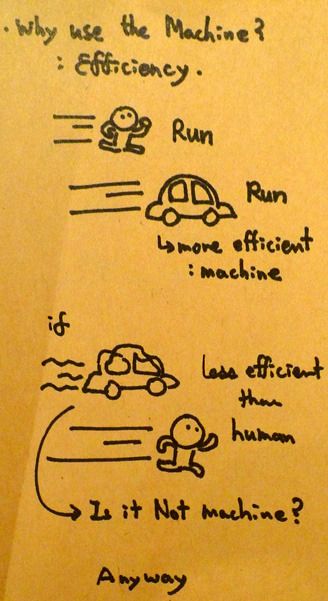 . Why use the Machine?
: Efficiency.
Run
Run
↳ more efficient
: machine
if
Less efficient
than
human
→ Is it Not machine?
Anyway